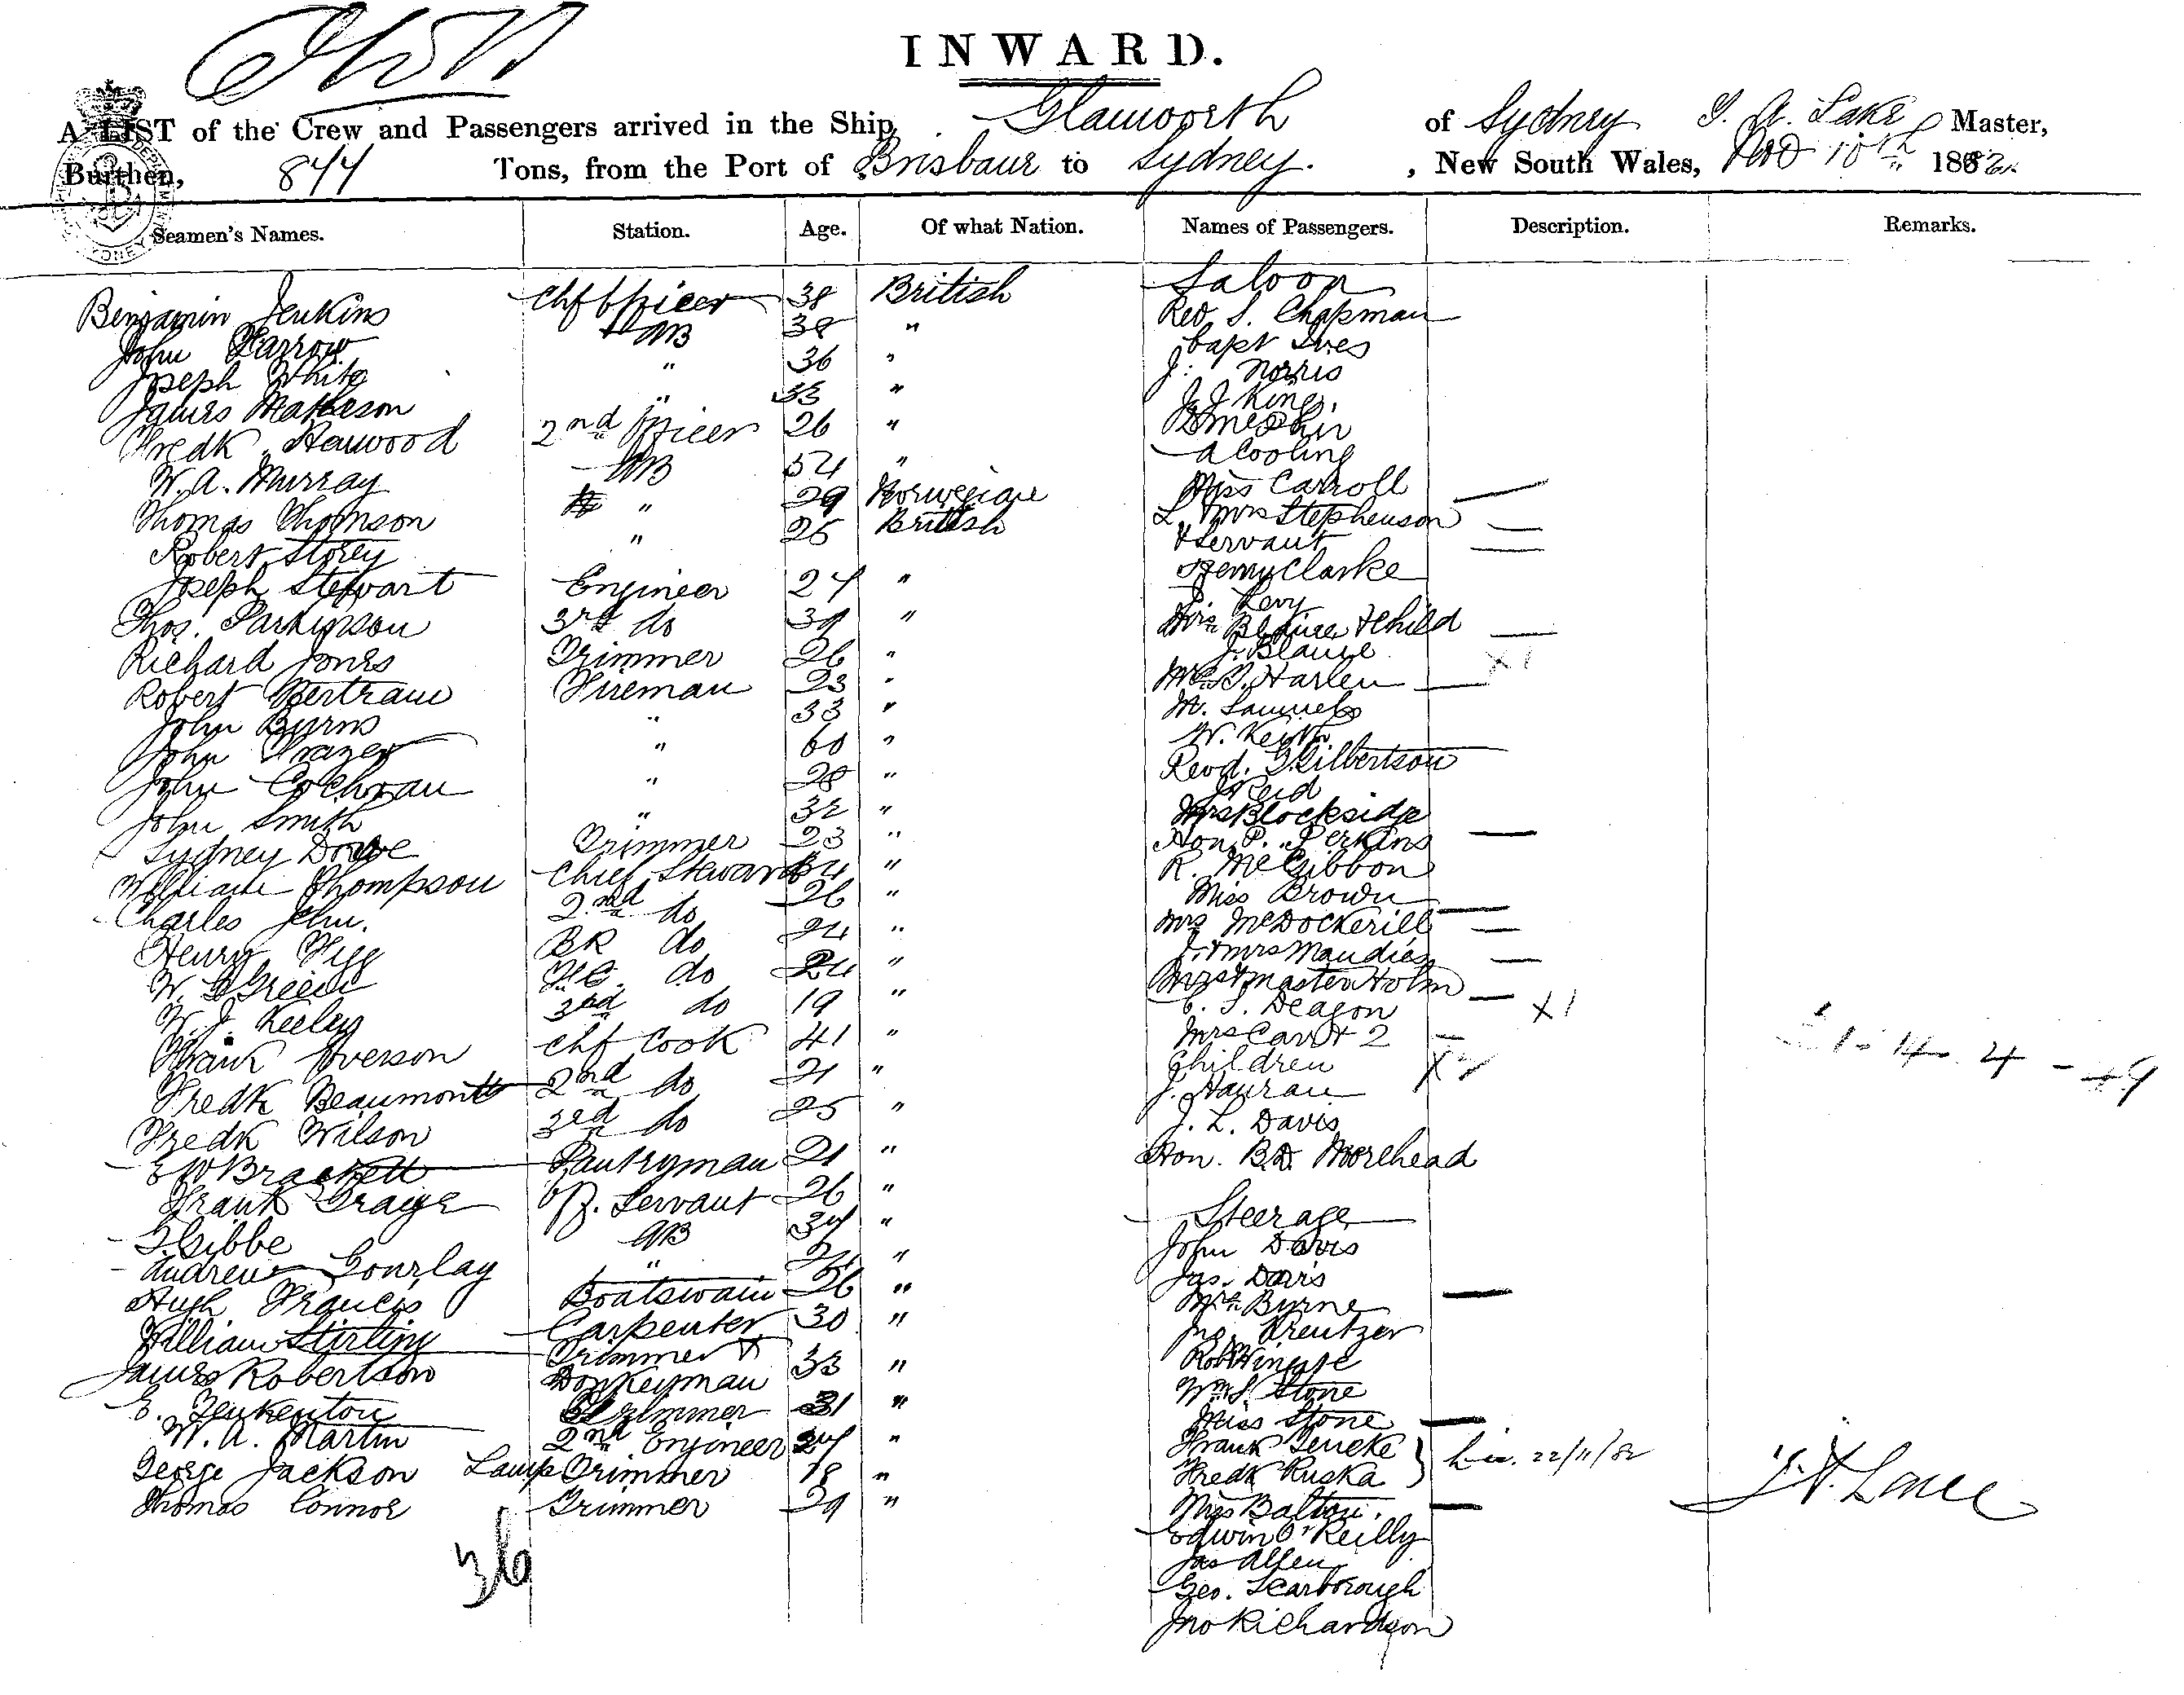 INWARD.
A LIST of the Crew and Passengers arrived in the Ship, Glamworth of Sydney Master,
Burthen, 844 Tons, from the Port of Brisbane to Sydney. , New South Wales, Nov 10th 1882.
Seamen's Names. Station. Age. Of what Nation. Names of Passengers. Description. Remarks.
Saloon
Benjamin Jenkins Chf Officer 38 British Rev S. Chapman
John AB 38 " Capt Ives
Joseph White " 36 " J. Norris
James Matheson " 33 " J. J King.
Fredk Henwood 2nd Officer 26 "
W. A. Murray AB 54 " A Cooling
Thomas Thomson " 29 Norwegian Miss Carroll
Robert Storey " 25 British L. Mrs Stephenson
& Servant
Joseph Stewart Engineer 27 " Henry Clarke
Levy
Thos. Parkinson 3rd do 39 " Mrs & Child
Richard Jones Trimmer 26 " J.
Robert Bertram Fireman 23 " Harlen
John Byrns " 33 " M. Samuels
John Frazer " 60 " W. Keith
John Cochran " 28 " Revd. G. Gilbertson
Reid
John Smith " 32 " Mrs Blocksidge
Sydney Dowe Trimmer 23 " Hon. P. Perkins
William Thompson Chief Steward 34 " R. McGibbon
Charles John. 2nd do 26 " Miss Brown
Henry BR do 24 " Mrs McDockerill
W. Green do 24 " J. & Mrs Maudies
Mrs & Master Holm
W. J. Keeley 3rd do 19 " C. S. Deagon X1
Frank Iverson Chf Cook 41 " Mrs Carr & 2
Children
Fredk Beaumont 2nd do 21 " J. Hanran
Fredk Wilson 3rd do 25 " J. L. Davis
E W Brackett Pantryman 21 " Hon. B.D. Moorehead
Frank Servant 26 "
Steerage
AB 34 " John Davis
Andrew Gourlay " " Jas. Davis
Hugh Francis Boatswain 26 " Mrs Byrne
William Stirling Carpenter 30 " Jno. Kreutzer
James Robertson Trimmer & Donkeyman 33 " Robt
Wm S. Stone
E. Trimmer 31 " Miss Stone
W. A. Martin 2nd Engineer 34 " Frank
George Jackson Lamp Trimmer 18 " Fredk Ruska 22/11/82
Thomas Connor Trimmer 29 " Miss Balton.
Edwin O'Reilly
36
Jas Allen
Geo. Scarborough
Jno Richardson